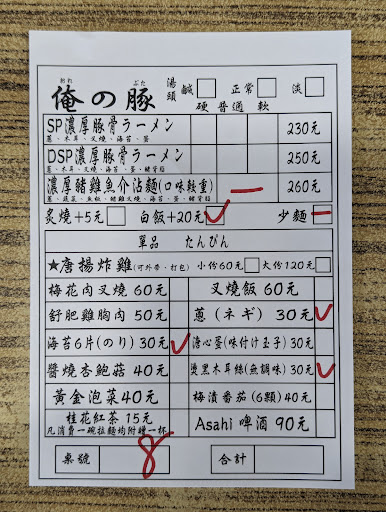 おれ ぶた
俺の豚
湯頭 鹹 正常 淡
硬 普通 軟
SP濃厚豚骨ラーメン 230元
蔥、木耳、叉燒、海苔、蛋
DSP濃厚豚骨ラーメン 250元
蔥、木耳、叉燒、海苔、蛋、豬背脂
濃厚豬雞魚介沾麵(口味較重) 260元
炙燒+5元 白飯+20元 少麵
單品 たんぴん
★唐揚炸雞(可外帶、打包) 小份60元 大份120元
梅花肉叉燒 60元 叉燒飯 60元
舒肥雞胸肉 50元 蔥(ネギ) 30元
海苔6片(のり) 30元 溏心蛋(味付け玉子) 30元
醬燒杏鮑菇 40元 燙黑木耳絲(無調味) 30元
黃金泡菜40元 梅漬番茄(6顆)40元
桂花紅茶 15元 Asahi 啤酒 90元
凡消費一碗拉麵均附贈一杯
桌號 8 合計